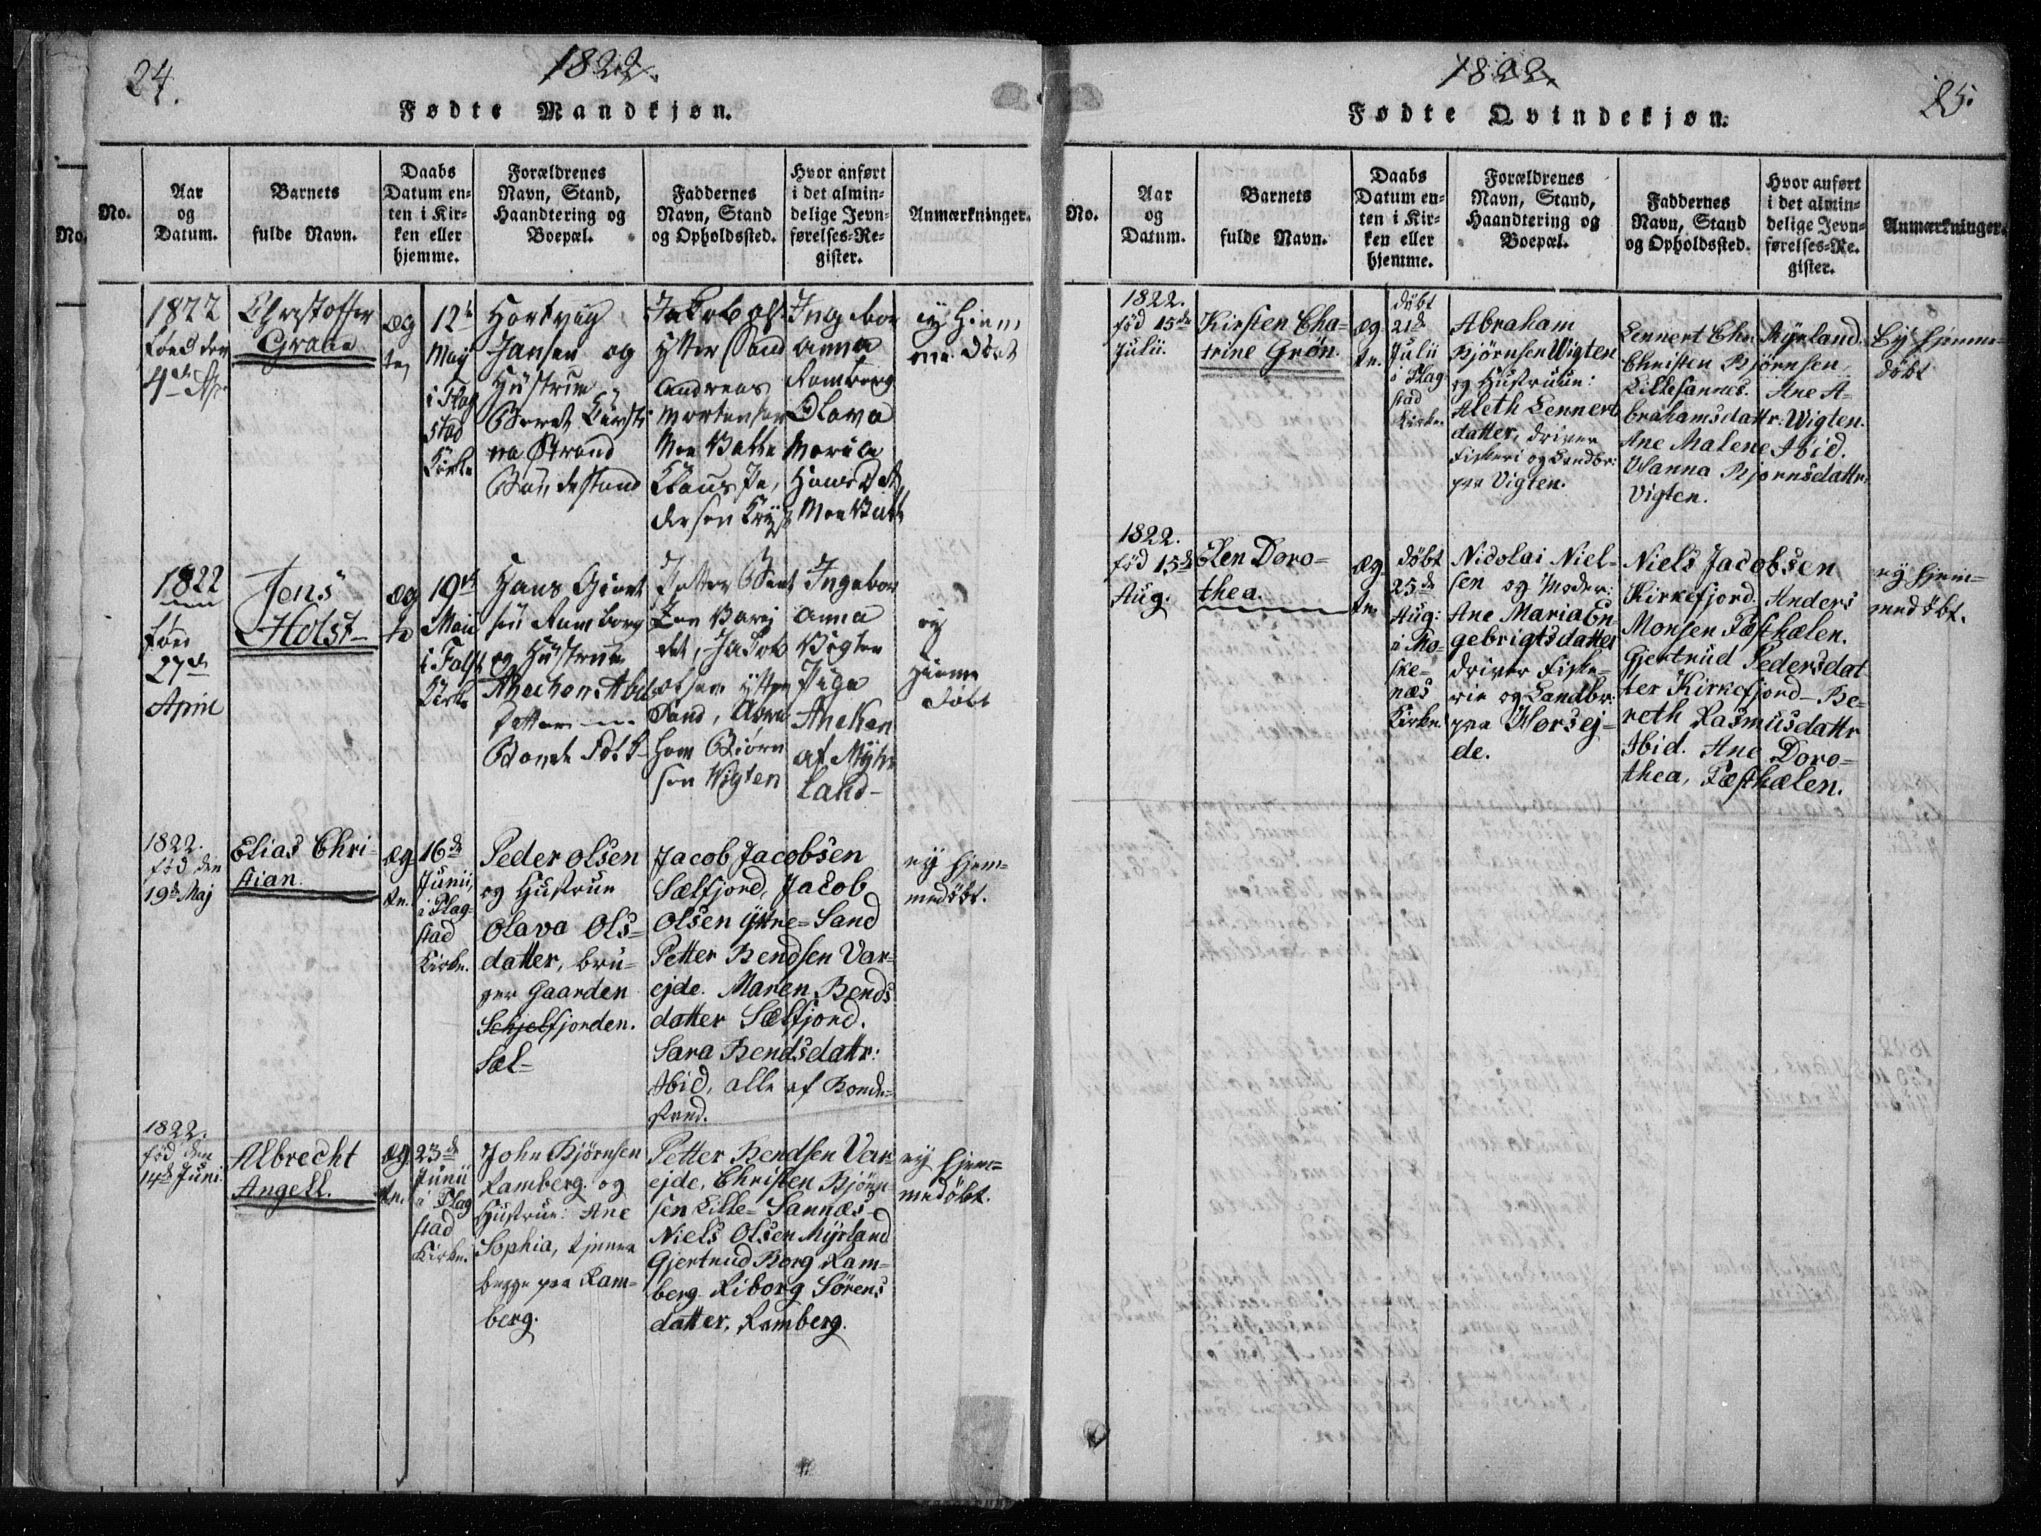 24.
1822.
Fødte Mandkjøn.
No.
No.
Aar
og
Datum.
Barnets
fulde Navn.
Daabs
Datum en-
ten i Kir-
ken eller
hjemme.
Forældrenes
Navn, Stand,
Haandtering og
Boepæl.
Faddernes
Navn, Stand
og Opholdssted.
Hvor anført
i det almin-
delige Jevn-
førelses-Re-
gister.
Anmærkninger.
1822
4de
Christoffer
Grane
æg
te
12te
May
i Flag
stad
Kirke
Hartvig
Jansen og
Hustrue
Beret Kirsti
na Strand
Bondestand
Jakob Ols
Ytter Sand
Andreas
Mortensen
Klaus Pe,
dersen
Ingebor
Anna
Ramberg
Olava
Maria
Hans Dat
ey hiem
me døbt
1822
Fød
27de
April
Jens
Holst
æg
te
19de
Maii
Kirke
Hans
sen Ramberg
og Hustrue
Petter Bent
Zen Varej
det, Jakob
olsen Ytter
Sand, Abra
ham Biørn
sen Wigten
Ingebor
Anna
Vigten
Pige
Aneken
af Myhr
land
ey
Hieme
døbt
1822.
fød den
19de Maj
Elias Chri-
stian.
æg-
te.
16de
Junii,
i Flag-
stad
Kirke.
Peder olsen
og Hustrue
Olava Ols-
datter, bru-
ger Gaarden
Schjelfjorden.
Sæl-
Jacob Jacobsen
Sælfjord, Jacob
Olsen Yttre-Sand
Petter Bendsen Var-
ejde. Maren Bends
datter Sælfjord.
Sara Bendsdattr:
Ibid, alle af Bonde-
stand.
ey hjem-
medøbt.
1822.
fød den
14de Juni
Albrecht
Angell.
æg
te.
23de
Junii
i Flag
stad
Kirke.
John Bjørnsen
Ramberg. og
Hustrue: Ane
Sophia, tjener
begge paa Ram-
berg.
Petter Bendsen Var-
ejde, Christen Bjørn
sen Lille-Sannæs
Niels Olsen Myrland
Gjertrud Borg Ram-
berg. Riborg Sørens
datter, Ramberg.
ey hjem-
medøbt.
1822.
25.
Fødte Qvindekjøn.
No.
Aar
og
Datum.
Barnets
fulde Navn.
Daabs
Datum en-
ten i Kir-
ken eller
hjemme.
Forældrenes
Navn, Stand,
Haandtering og
Boepæl.
Faddernes
Navn, Stand
og Opholdssted.
Hvor anført
i det almin-
delige Jevn-
førelses-Re-
gister.
Anmærkninger.
1822.
fød 15de
Julii.
Kirsten Cha-
trine Grøn.
æg-
te.
døbt
21de
Julii
i Flag-
stad
Kirke.
Abraham
Bjørnsen Wigten
og Hustruen:
Aleth Lennert
datter, driver
Fiskeri og Landbr:
paa Vigten.
Lennert Chr: Myrland.
Christen Bjørnsen,
Lillesannes. Ane A-
brahamsdattr: Wigten.
Ane Malene Ibid.
Wanna Bjørnsdattr:
Vigten.
Ey hjemme-
døbt
1822.
fød 15de
Aug.
Elen Doro-
thea.
æg-
te.
døbt
25de
Aug:
i Mo-
ske-
næs
Kirke.
Nicolai Niel-
sen og Moder:
Ane Maria En-
gebrigtsdatter
driver Fiske-
rie og Landbr:
paa Horsej-
de.
Niels Jacobsen
Kirkefjord. Anders
Monsen Fæsthælen.
Gjertrud Pedersdat
ter Kirkefjord- Be-
reth Rasmusdattr
Ibid. Ane Doro-
thea, Fæsthælen.
ey hjem-
medøbt.